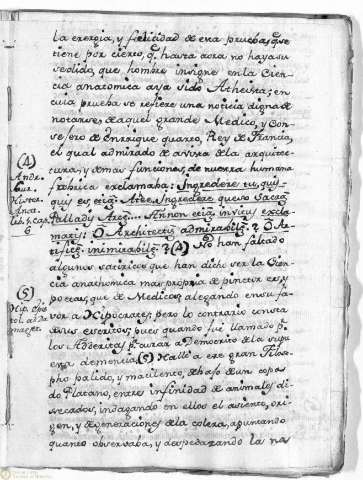 la energia, y felicidad de esta prueba, q.e se
tiene por cierto, q.e hasta aora no haya su
sedido, que hombre insigne en la Cien
cia anatomica aya sido Atheista; en
cuia prueba se refiere una noticia digna de
notarse, de aquel grande Medico, y Con
sejero de Enrrique quarto, Rey de Francia,
el qual admirado de la arquitec
tura, y demas funciones, de nuestra humana
fabrica exclamaba: Ingredere tu, quis
quis es etiã Athee Ingredere queso Sacrã
Palladis Arcẽ... Añnon etiã invitus excla
maris: O Architectũ admirabilẽ? O Ar
tificẽ inimitabilẽ? (4) No han faltado
algunos satiricos que han dicho ser la Cien
cia anathomica mas propria de pintores, y
poetas, que de Medicos, alegando en su fa
vor a Hipocrates; pero lo contrario consta
de sus escritos; pues quando fue llamado p.r
los Abderitas p.a curar a Democrito de la supu
esta demencia, (5) Hallè a este gran Filoso
pho palido, y macilento, debaxo de un copos
do Platano, entre infinidad de animales di
secados, indagando en ellos el asiento, ori
gen, y degeneraciones de la colera, apuntando
quanto observaba, y despedazando la na
(4)
Andr.
Laur.
Histor.
Anat.
lib. 1. cap.
6
(5)
Hip. epis
tol. ad Da
maget.